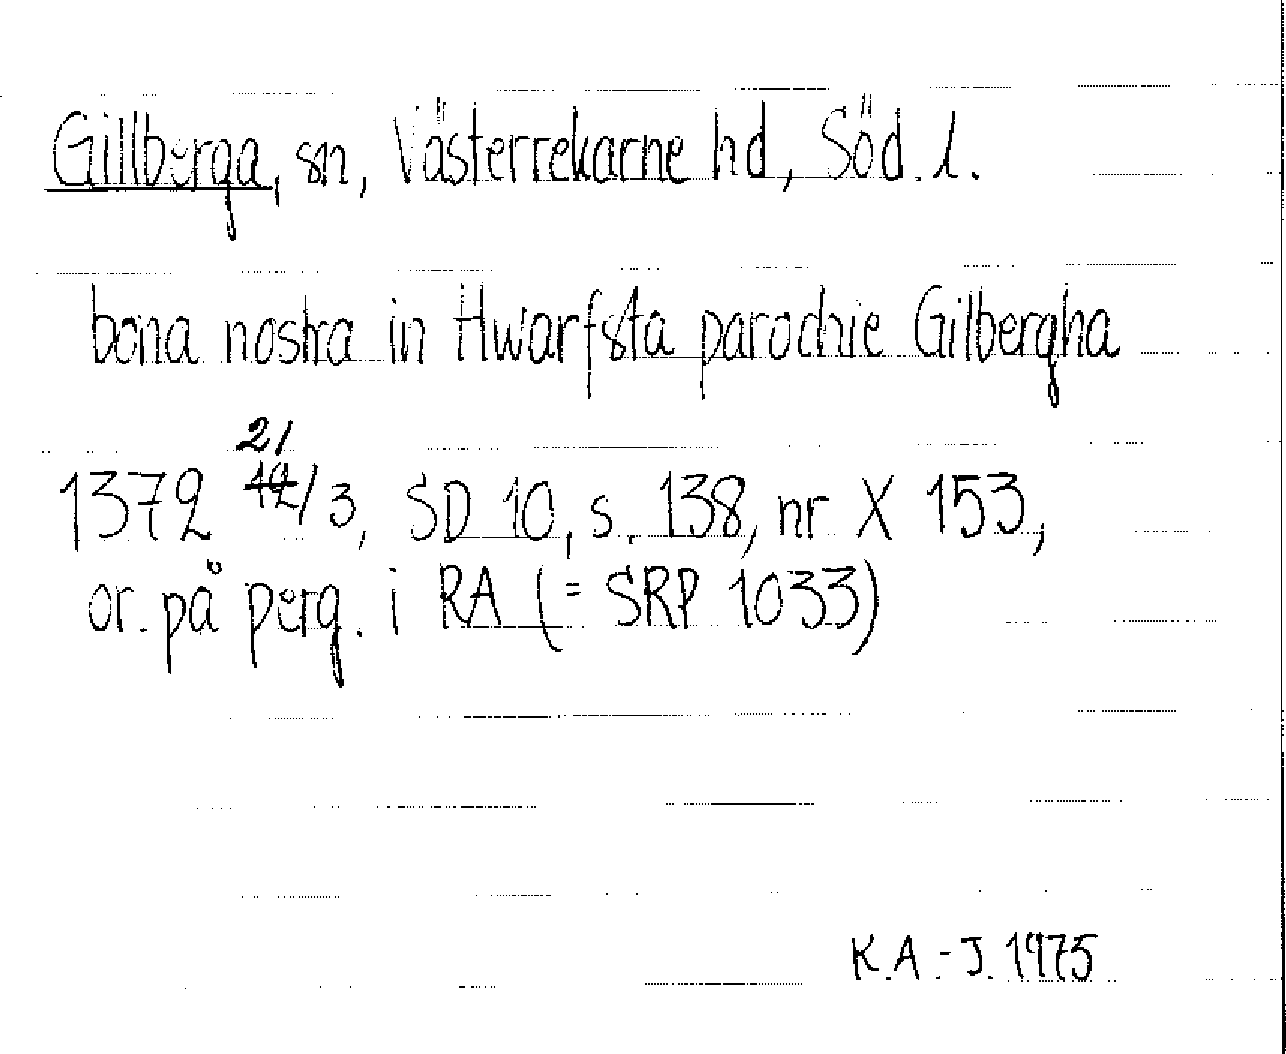 Gillberga, sn, Västerrekarne hd, Söd. l.
bona nostra in Hwarfsta parochie Gilbergha
21/
1372 12/3, SD 10, s. 138, nr X 153,
or. på perg. i RA (= SRP 1033)
K.A.-J. 1975